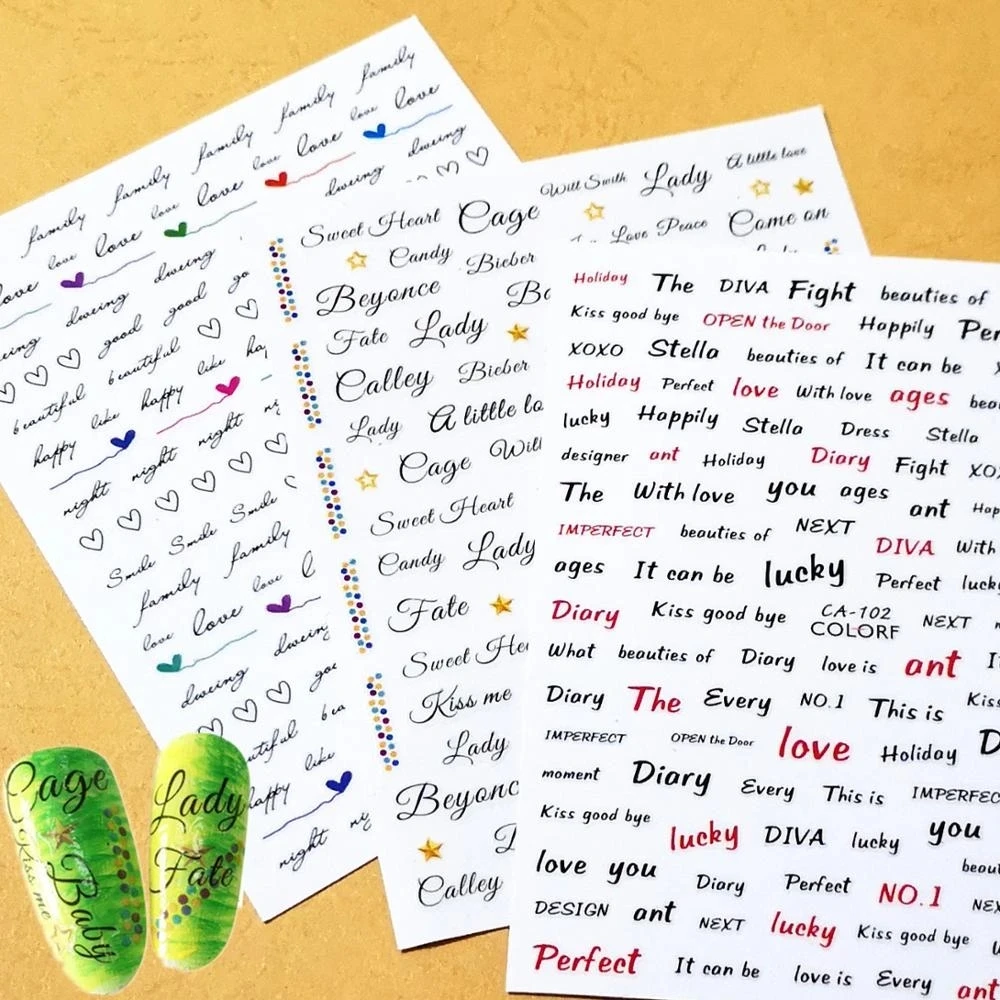 family family family family family
love love love love love love love
dweing dweing dweing dweing
good good go
beautiful beautiful
happy like happy like
night night night
Smile Smile Smile
family family
love love love
dweing dweing
like
happy
night
Will Smith Lady A little love
Sweet Heart Cage Love Peace Come on
Candy Bieber
Beyonce
Fate Lady
Calley Bieber
Lady A little lo
Cage Will
Sweet Heart
Candy Lady
Fate
Sweet He
Kiss me
Lady
Beyonc
Calley
Holiday The DIVA Fight beauties of
Kiss good bye OPEN the Door Happily Per
XOXO Stella beauties of It can be
Holiday Perfect love With love ages beau
lucky Happily Stella Dress Stella
designer ant Holiday Diary Fight XO
The With love you ages ant Hap
IMPERFECT beauties of NEXT DIVA With
ages It can be lucky Perfect luck
Diary Kiss good bye CA-102 NEXT
COLORF
What beauties of Diary love is ant It
Diary The Every NO.1 This is Kiss
IMPERFECT OPEN the Door love Holiday D
moment Diary Every This is IMPERFEC
Kiss good bye lucky DIVA lucky you
love you Diary Perfect NO.1 NEX
DESIGN ant NEXT lucky Kiss good bye
Perfect It can be love is Every ant
Cage
Kiss me
Baby
Lady
Fate